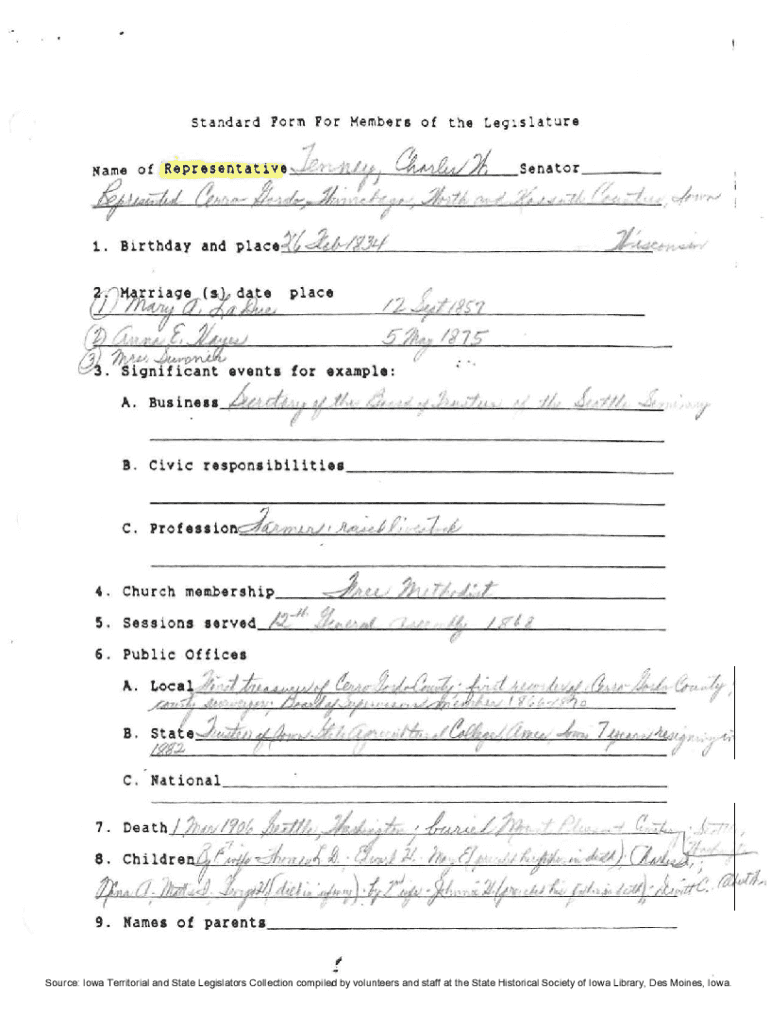 Standard Form For Members of the Legislature
Name of Representative Tenney, Charles W. Senator
Represented Cerro Gordo, Winnebago, Worth and Kossuth Counties, Iowa
1. Birthday and place 26 Feb 1834 Wisconsin
2. Marriage (s) date place
(1) Mary A. 12 Sept 1857
(2) Anna E. Hayes 5 May 1875
(3) Mrs.
3. Significant events for example:
A. Business Secretary of the Board of Trustees of the Seattle Seminary
B. Civic responsibilities
C. Profession Farmer; raised livestock
4. Church membership Free Methodist
5. Sessions served 12th General Assembly 1868
6. Public Offices
A. Local First treasurer of Cerro Gordo County; first recorder of Cerro Gordo County;
county surveyor; Board of Supervisors member 1866-1870
B. State Trustee of Iowa State Agricultural College Ames, Iowa 7 years resigning in
1882
C. National
7. Death 1 Mar 1906 Seattle, Washington; buried Mount Pleasant Seattle,
Washington
8. Children By 1st wife - D.; H.; May E (preceded his father in death); Charles
A. (died in infancy); by 2nd wife - H (preceded his father in death); C.
9. Names of parents
Source: Iowa Territorial and State Legislators Collection compiled by volunteers and staff at the State Historical Society of Iowa Library, Des Moines, Iowa.